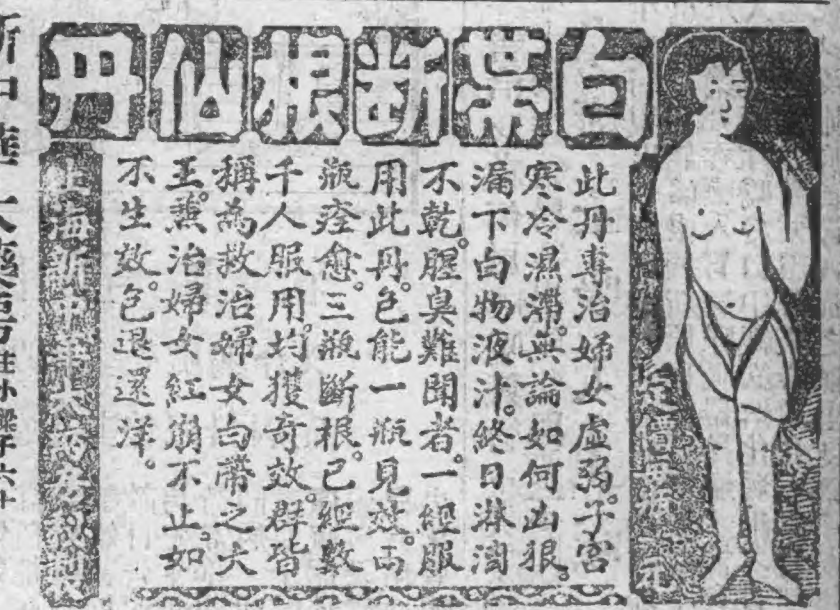 白帶断根仙丹
此丹專治婦女虛弱。子宮
寒冷濕滯。無論如何凶狠。
漏下白物液汁。終日淋漓
不乾。腥臭難聞者。一經服
用此丹。包能一瓶見效。兩
瓶痊愈。三瓶斷根。已經數
千人服用。均獲奇效。群皆
稱為救治婦女白帶之大
王。兼治婦女紅崩不止。如
不生效。包退還洋。
上海新中華大药房秘製
定價每瓶一元